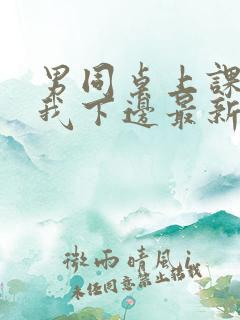 男同桌上課
我下邊最新
微雨晴风i
未经同意禁止转载